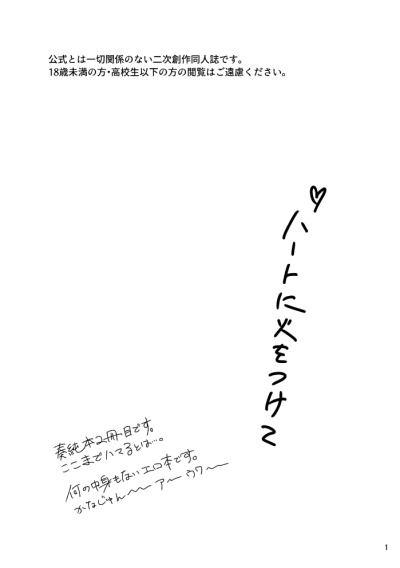 公式とは一切関係のない二次創作同人誌です。
18歳未満の方・高校生以下の方の閲覧はご遠慮ください。
♡ハートに火をつけて
奏純本2冊目です。
ここまでハマるとは…。
何の中身もないエロ本です。
かなじゅん〜〜 アー ウワ〜〜
1